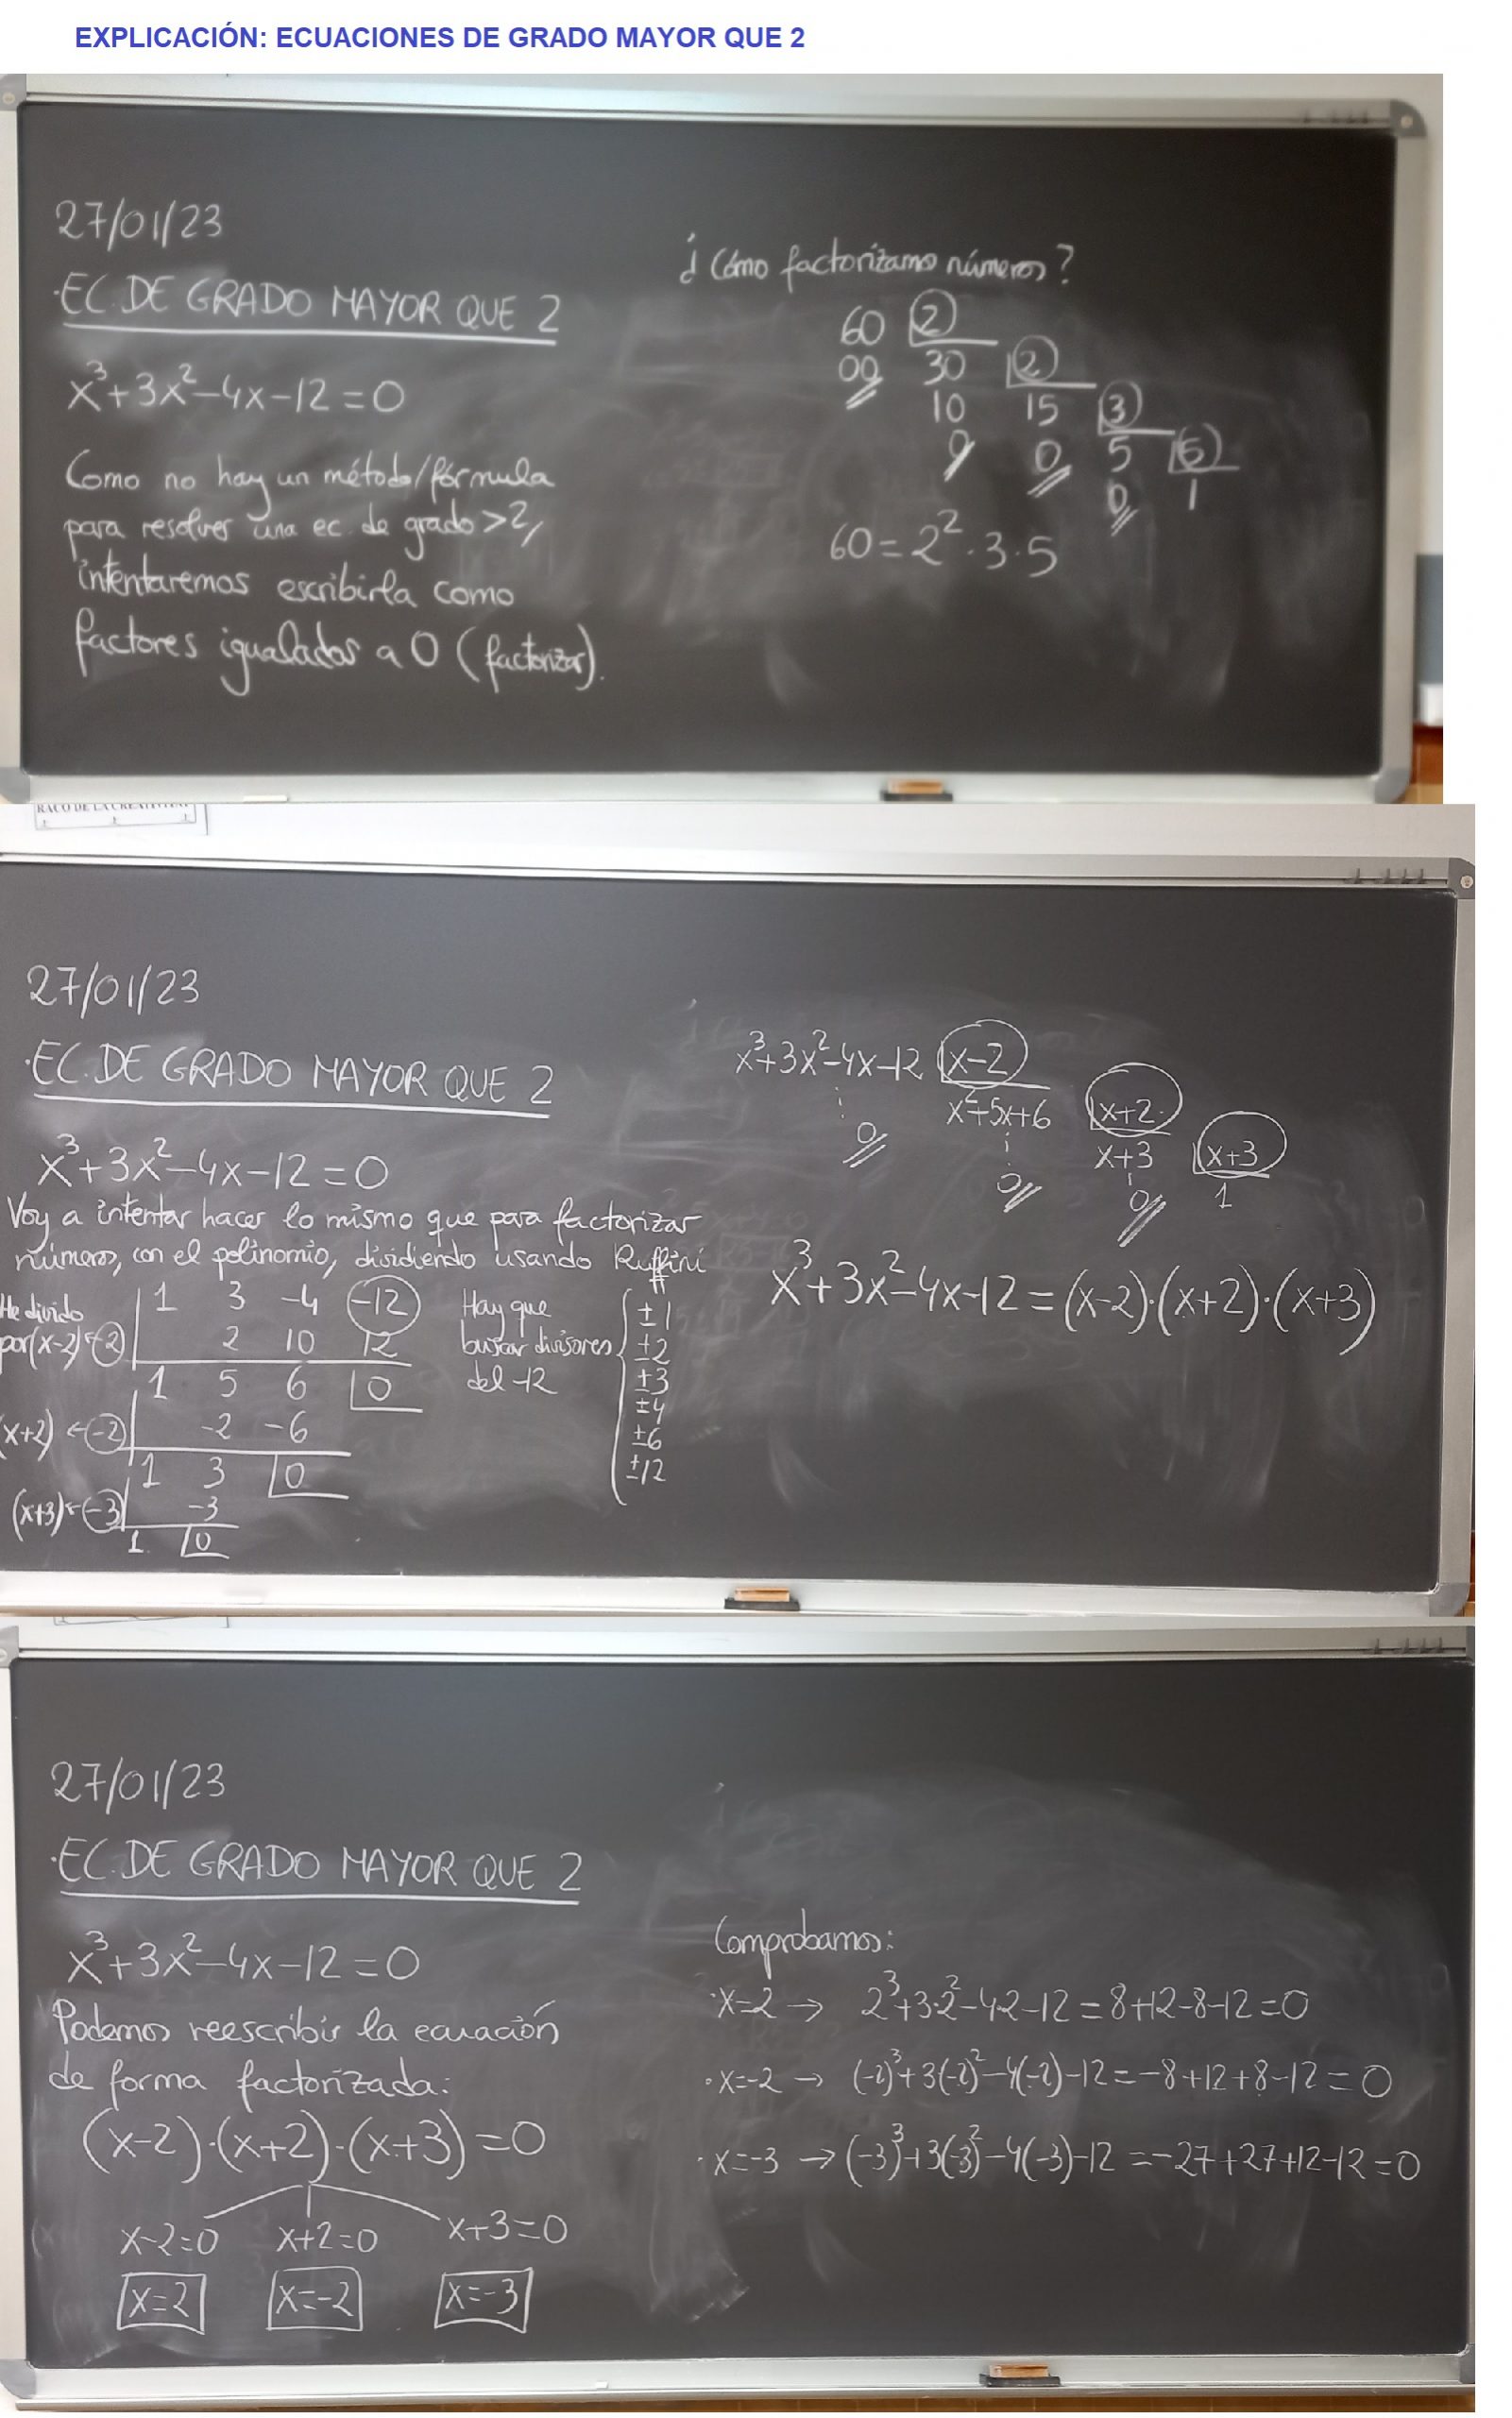 EXPLICACIÓN: ECUACIONES DE GRADO MAYOR QUE 2
27/01/23
·EC. DE GRADO MAYOR QUE 2
x³+3x²-4x-12=0
Como no hay un método/fórmula
para resolver una ec. de grado >2,
intentaremos escribirla como
factores igualados a 0 (factorizar).
¿Cómo factorizamos números?
60 2
00 30 2
10 15 3
0 0 5 5
0 1
60=2²·3·5
RACÓ DE LA CREATIVITAT
27/01/23
·EC. DE GRADO MAYOR QUE 2
x³+3x²-4x-12=0
Voy a intentar hacer lo mismo que para factorizar
números, con el polinomio, dividiendo usando Ruffini
He divido
por (x-2) ← 2
1 3 -4 -12
2 10 12
1 5 6 0
(x+2) ← -2
-2 -6
1 3 0
(x+3) ← -3
-3
1 0
Hay que
buscar divisores
del -12
±1
±2
±3
±4
±6
±12
x³+3x²-4x-12 x-2
0 x²+5x+6 x+2
0 x+3 x+3
0 1
x³+3x²-4x-12=(x-2)·(x+2)·(x+3)
27/01/23
·EC. DE GRADO MAYOR QUE 2
x³+3x²-4x-12=0
Podemos reescribir la ecuación
de forma factorizada:
(x-2)·(x+2)·(x+3)=0
x-2=0 x+2=0 x+3=0
x=2 x=-2 x=-3
Comprobamos:
·x=2 → 2³+3·2²-4·2-12=8+12-8-12=0
·x=-2 → (-2)³+3(-2)²-4(-2)-12=-8+12+8-12=0
·x=-3 → (-3)³+3(-3)²-4(-3)-12=-27+27+12-12=0